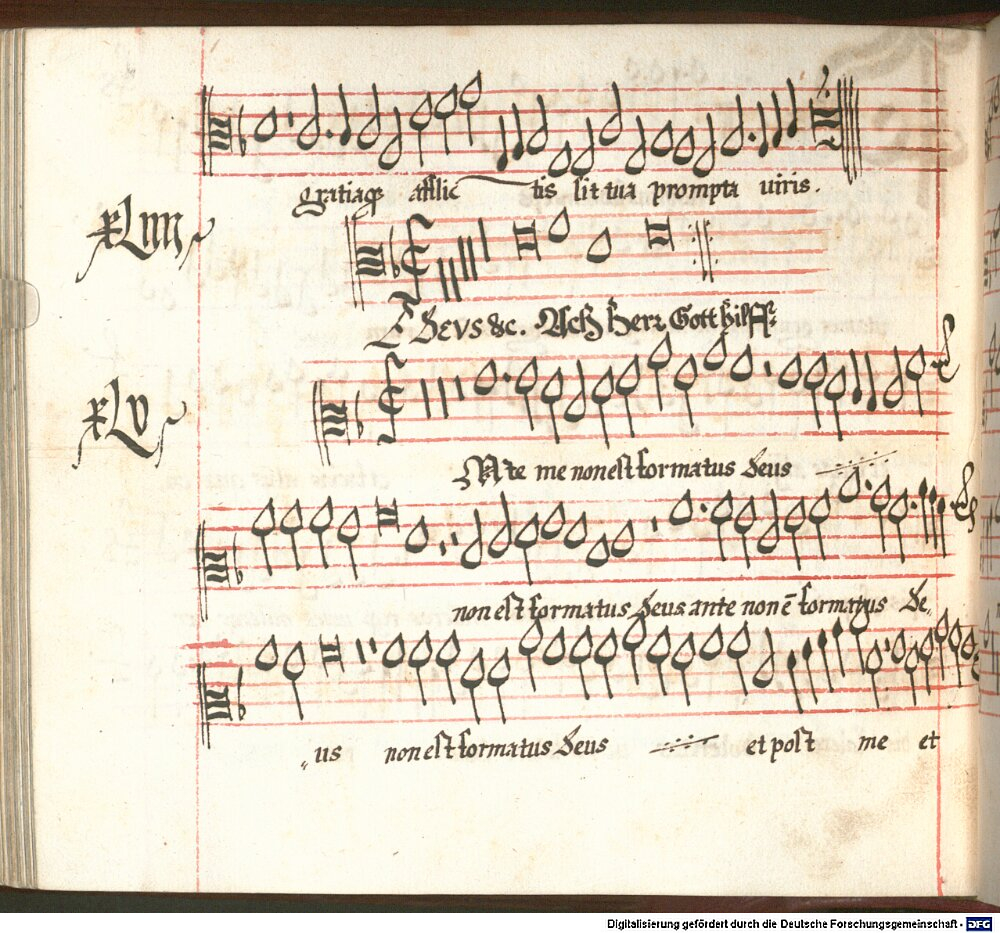 gratiaq; afflic tis sit tua prompta uiris.
XLIIII
E Deus &c. Ach Herr Gott hilff.
XLV
Ante me non est formatus Deus
non est formatus Deus ante non ē formatus De„
„us non est formatus Deus et post me et
Digitalisierung gefördert durch die Deutsche Forschungsgemeinschaft - DFG